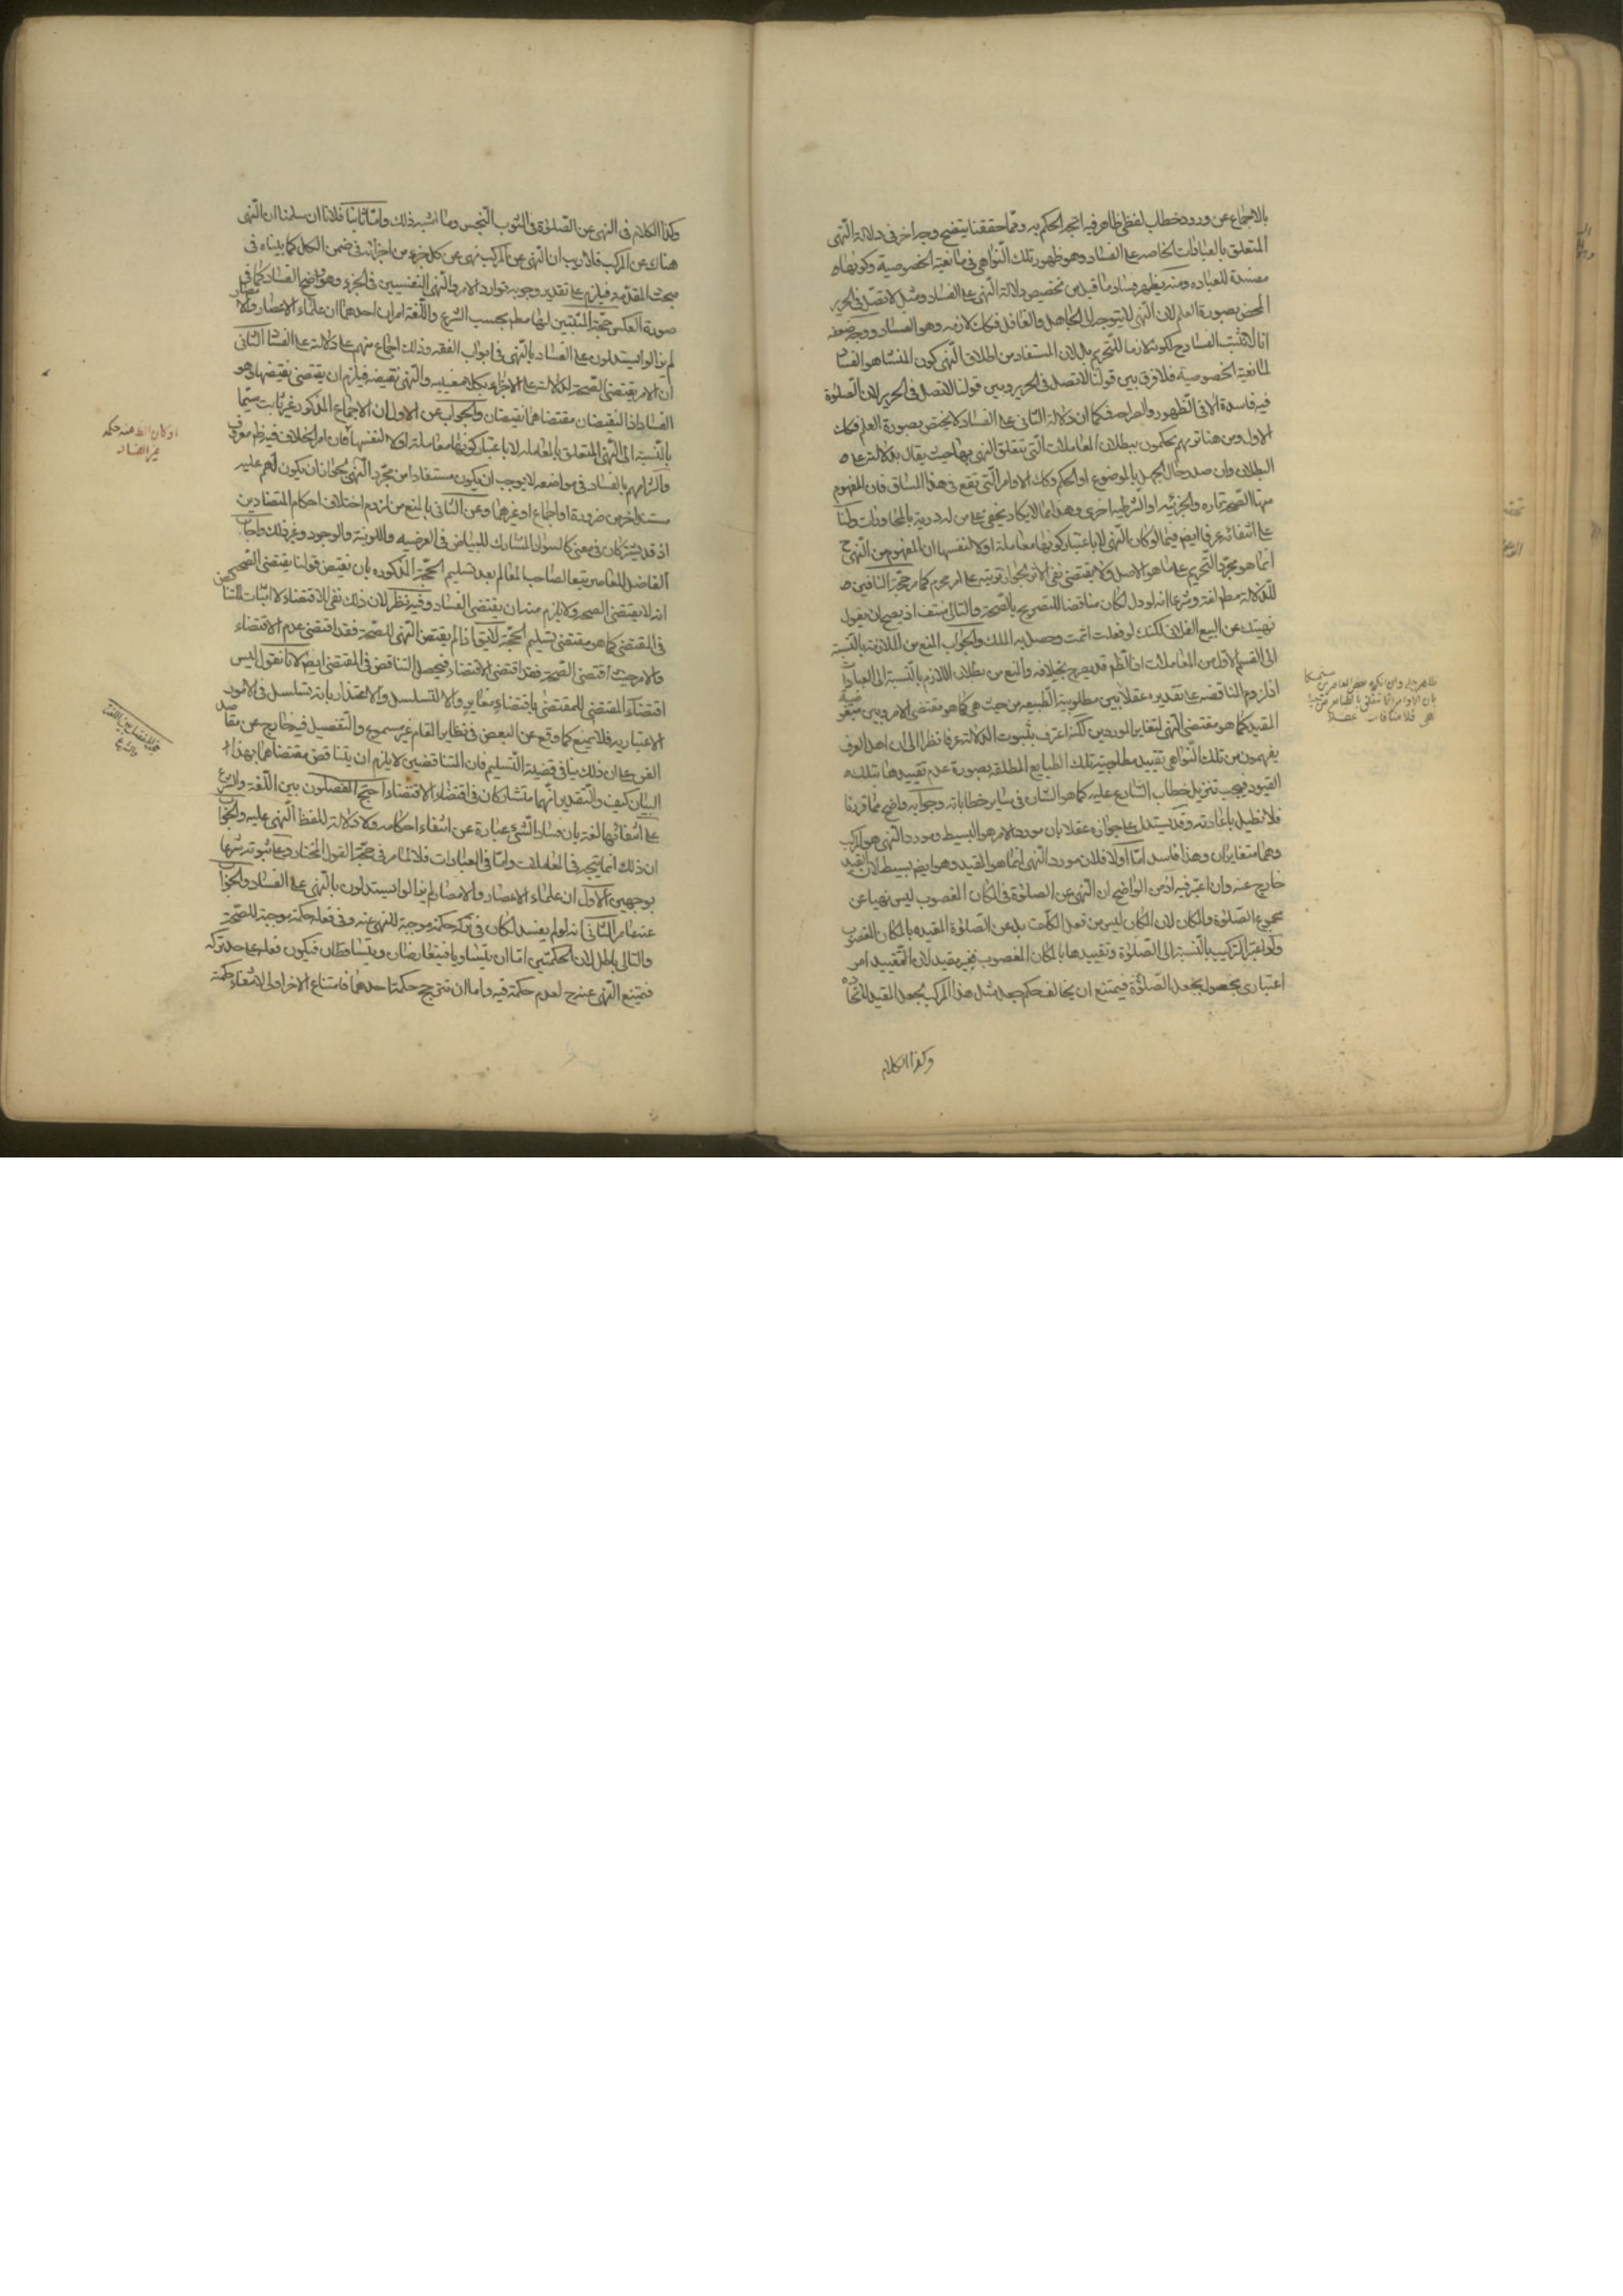 بالاجماع عن ورود خطاب لفظى ظاهر فيه اتجه الحكم به ومما حققنا يتضح وجه اخر فى دلالة النهى
المتعلق بالعبادات الخاصه على الفساد وهو ظهور تلك النواهى فى مانعية الخصوصية وكونها
مفسدة للعباده ومنه يظهر فساد ما قيل من تخصيص دلالة النهى على الفساد ومثل لا تصل فى الحرير
المحض بصورة العلم لان النهى لا يتوجه الى الجاهل والغافل فكك لازمه وهو الفساد ووجه ضعفه
انا لا نثبت الفساد ح لكونه لازما للتحريم بل لان المستفاد من اطلاق النهى كون المنشا هو الفسا
لمانعية الخصوصية فلا فرق بين قولنا لا تصل فى الحرير وبين قولنا لا تصل فى الحرير لان الصلوة
فيه فاسدة الا فى الظهور والصراحه فكما ان دلالة الثانى على الفساد لا يختص بصورة العلم فكك
الاول ومن هنا تريهم يحكمون ببطلان المعاملات التى يتعلق النهى بها حيث يقال بدلالته على
البطلان وان صدر حال الجهل بالموضوع او الحكم وكك الاوامر التى تقع فى هذا المساق فان المفهوم
منها الصحة تاره والجزئيه او الشرطيه اخرى وهذا مما لا يكاد يخفى على من له دربة بالمحاورات ولنا
على انتفائه عرفا ايض فيما لو كان النهى لا باعتبار كونها معاملة او لا لنفسها ان المفهوم من النهى ح
انما هو مجرد التحريم على ما هو الاصل ولا يقتضى نفى الاثر لجواز ترتبه على امر محرم كما مر حجة النافين
للدلالة مطم لغة وشرعا انه لو دل لكان مناقضا للتصريح بالصحة والتالى منتف اذ يصح ان يقول
نهيتك عن البيع الفلانى لكنك لو فعلت اثمت وحصل به الملك والجواب المنع من الملازمة بالنسبة
الى القسم الاول من المعاملات اذ الظم قد يصرح بخلافه والمنع من بطلان اللازم بالنسبة الى العبادا
اذ لزوم المناقضه على تقديره عقلا بين مطلوبية الطبيعه من حيث هى كما هو مقتضى الامر وبين مبغو
المقيد كما هو مقتضى النهى لتغاير الموردين لكنه اعترف بثبوت الدلالة عرفا نظرا الى ان اهل العرف
يفهمون من تلك النواهى تقييد مطلوبية تلك الطبايع المطلقه بصورة عدم تقييدها بتلك
القيود فيجب تنزيل خطاب الشارع عليه كما هو الشان فى ساير خطاباته وجوابه واضح مما قررنا
فلا نطيل باعادته وقد يستدل على جوازه عقلا بان مورد الامر هو البسيط ومورد النهى هو المركب
وهما متغايران وهذا فاسد اما اولا فلان مورد النهى انما هو المقيد وهو ايض بسيط لان القيد
خارج عنه وان اعتبر فيه اذ من الواضح ان النهى عن الصلوة فى المكان المغصوب ليس نهيا عن
مجموع الصلوة والمكان لان المكان ليس من فعل المكلف بل عن الصلوة المقيده بالمكان المغصوب
ولو اعتبر التركيب بالنسبة الى الصلوة وتقييدها بالمكان المغصوب فغير مقيد لان التقييد امر
اعتبارى يحصل بجعل الصلوة فيمتنع ان يخالف حكم جعل مثل هذا المركب لجعل المقيد لاتحا
ده
وكذا الكلام
ظاهر
بان الاوامر انما تتعلق بالطبايع من حيث
هى فلا منافات عقلا
وكذا الكلام فى النهى عن الصلوة فى الثوب النجس وما اشبه ذلك واما ثانيا فلانا ان سلمنا ان النهى
هناك عن المركب فلا ريب ان النهى عن المركب نهى عن كل جزء من اجزائه فى ضمن الكل كما بيناه فى
مبحث المقدمة فيلزم على تقدير وجوبه توارد الامر والنهى النفسيين فى الجزء وهو واضح الفساد كما فى
صورة العكس حجة المثبتين لها مطم بحسب الشرع واللغة امران احدهما ان علماء الاعصار والامصار
لم يزالوا يستدلون على الفساد بالنهى فى ابواب الفقه وذلك اجماع منهم على دلالته على الفساد الثانى
ان الامر يقتضى الصحة لدلالته على الاجزاء بكلا معنييه والنهى نقيضه فيلزم ان يقتضى نقيضها وهو
الفساد اذ النقيضان مقتضاهما نقيضان والجواب عن الاول ان الاجماع المذكور غير ثابت سيما
بالنسبة الى النهى المتعلق بالمعاملة لا باعتبار كونها معاملة او لا لنفسها فان امر الخلاف فيه ظم معروف
والتزامهم بالفساد فى مواضعه لا يوجب ان يكون مستفادا من مجرد النهى لجواز ان يكون لهم عليه
مستند اخر من ضرورة او اجماع او غيرهما وعن الثانى بالمنع من لزوم اختلاف احكام المتضادين
اذ قد يشتركان فى معنى كالسواد المشارك للبياض فى العرضيه واللونية والوجود وغير ذلك واجاب
الفاضل المعاصر تبعا لصاحب المعالم بعد تسليم الحجة المذكوره بان نقيض قولنا يقتضى الصحة
انه لا يقتضى الصحه ولا يلزم منه ان يقتضى الفساد وفيه نظر لان ذلك نفى للاقتضاء لا اثبات للتنا
قض
فى المقتضى كما هو مقتضى تسليم الحجة لا يقا اذا لم يقتض النهى للصحة فقد اقتضى عدم الاقتضاء
والامر حيث اقتضى الصحة فقد اقتضى الاقتضاء فيحصل التناقض فى المقتضى ايض لانا نقول ليس
اقتضاء المقتضى للمقتضى باقتضاء مغاير والا لتسلسل والاعتذار بانه تسلسل فى الامور
الاعتباريه فلا يمنع كما وقع عن البعض فى نظاير المقام غير مسموع والتفصيل فيه خارج عن مقاصد
الفن على ان ذلك ينافى قضية التسليم فان المتناقضين لا يلزم ان يتناقض مقتضاهما بهذا
البيان كيف والتقدير انهما متشاركان فى اقتضاء الاقتضاء احتج المفصلون بين اللغة والشرع
على انتفائها لغة بان فساد الشئ عبارة عن انتفاء احكامه ولا دلالة للفظ النهى عليه والجواب
ان ذلك انما يتجه فى المعاملات واما فى العبادات فلا لما مر فى حجة القول المختار وعلى ثبوته شرعا
بوجهين الاول ان علماء الاعصار والامصار لم يزالوا يستدلون بالنهى على الفساد والجواب
عنه ما مر الثانى انه لو لم يفسد لكان فى تركه حكمة موجبة للنهى عنه وفى فعله حكمة موجبة للصحة
والتالى باطل لان الحكمتين اما ان يتساويا فيتعارضان ويتساقطان فيكون فعله على حد تركه
فيمتنع النهى عنه ح لعدم حكمة فيه واما ان تترجح حكمة احدهما فامتناع الاخر اولى لانتفاء حكمة